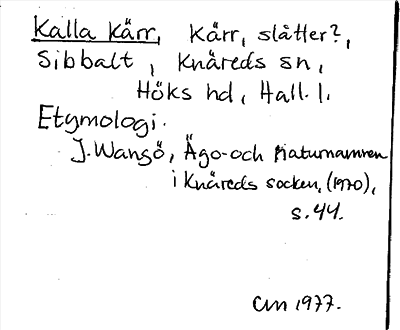 Kalla Kärr, Kärr, slåtter?,
Sibbalt, Knäreds sn,
Höks hd, Hall. l.
Etymologi.
J. Wangö, Ägo- och naturnamnen
i Knäreds socken, (1970),
s. 44.
CM 1977.